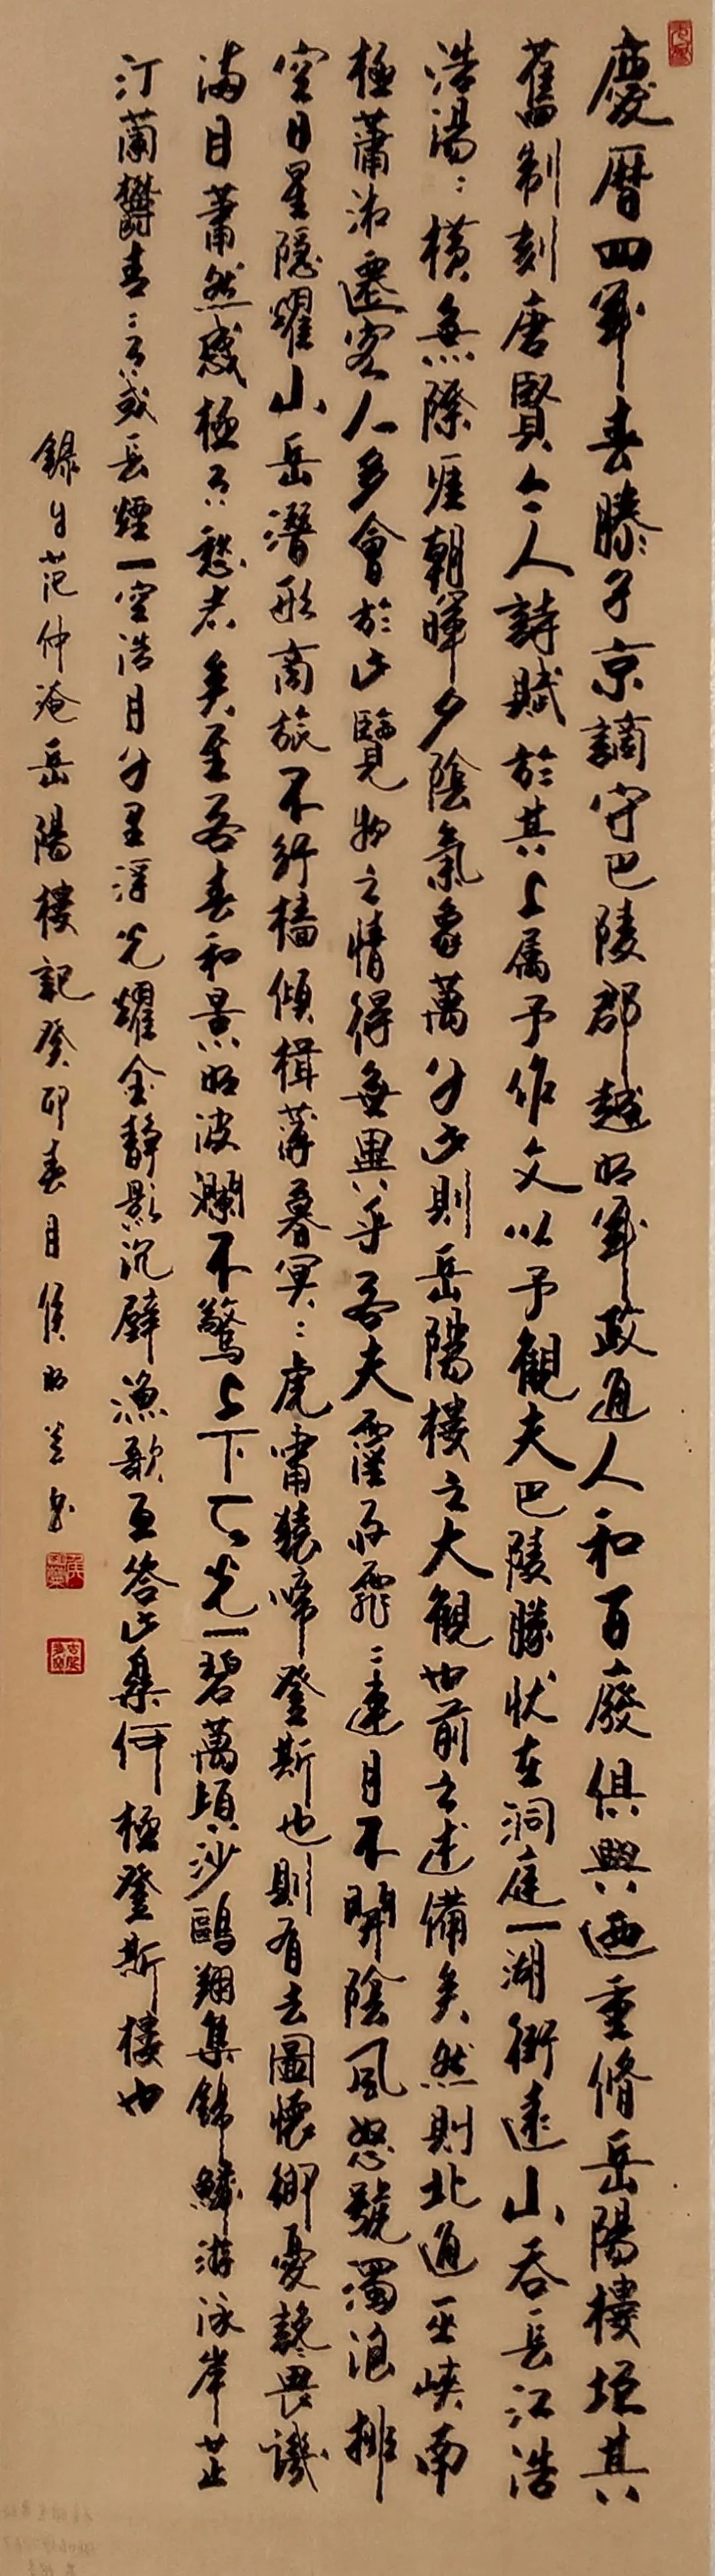 慶曆四年春滕子京謫守巴陵郡越明年政通人和百廢俱興迺重脩岳陽樓垣其
舊制刻唐賢今人詩賦於其上属予作文以予觀夫巴陵勝状在洞庭一湖銜遠山吞長江浩
浩湯〻橫無際涯朝暉夕陰氣象萬千此則岳陽樓之大觀也前之述備矣然則北通巫峽南
極瀟湘遷客人多會於此覽物之情得無異乎若夫霪雨霏〻連月不開陰風怒號濁浪排
空日星隱耀山岳潛形商旅不行檣傾楫薄暮冥〻虎嘯猿啼登斯也則有去國懷鄉憂讒畏譏
滿目蕭然感極而愁者矣至若春和景明波瀾不驚上下天光一碧萬頃沙鷗翔集錦鱗游泳岸芷
汀蘭鬱青〻而或長煙一空浩月千里浮光耀金靜影沉璧漁歌互答此樂何極登斯樓也
錄自范仲淹岳陽樓記癸卯春月侯明書